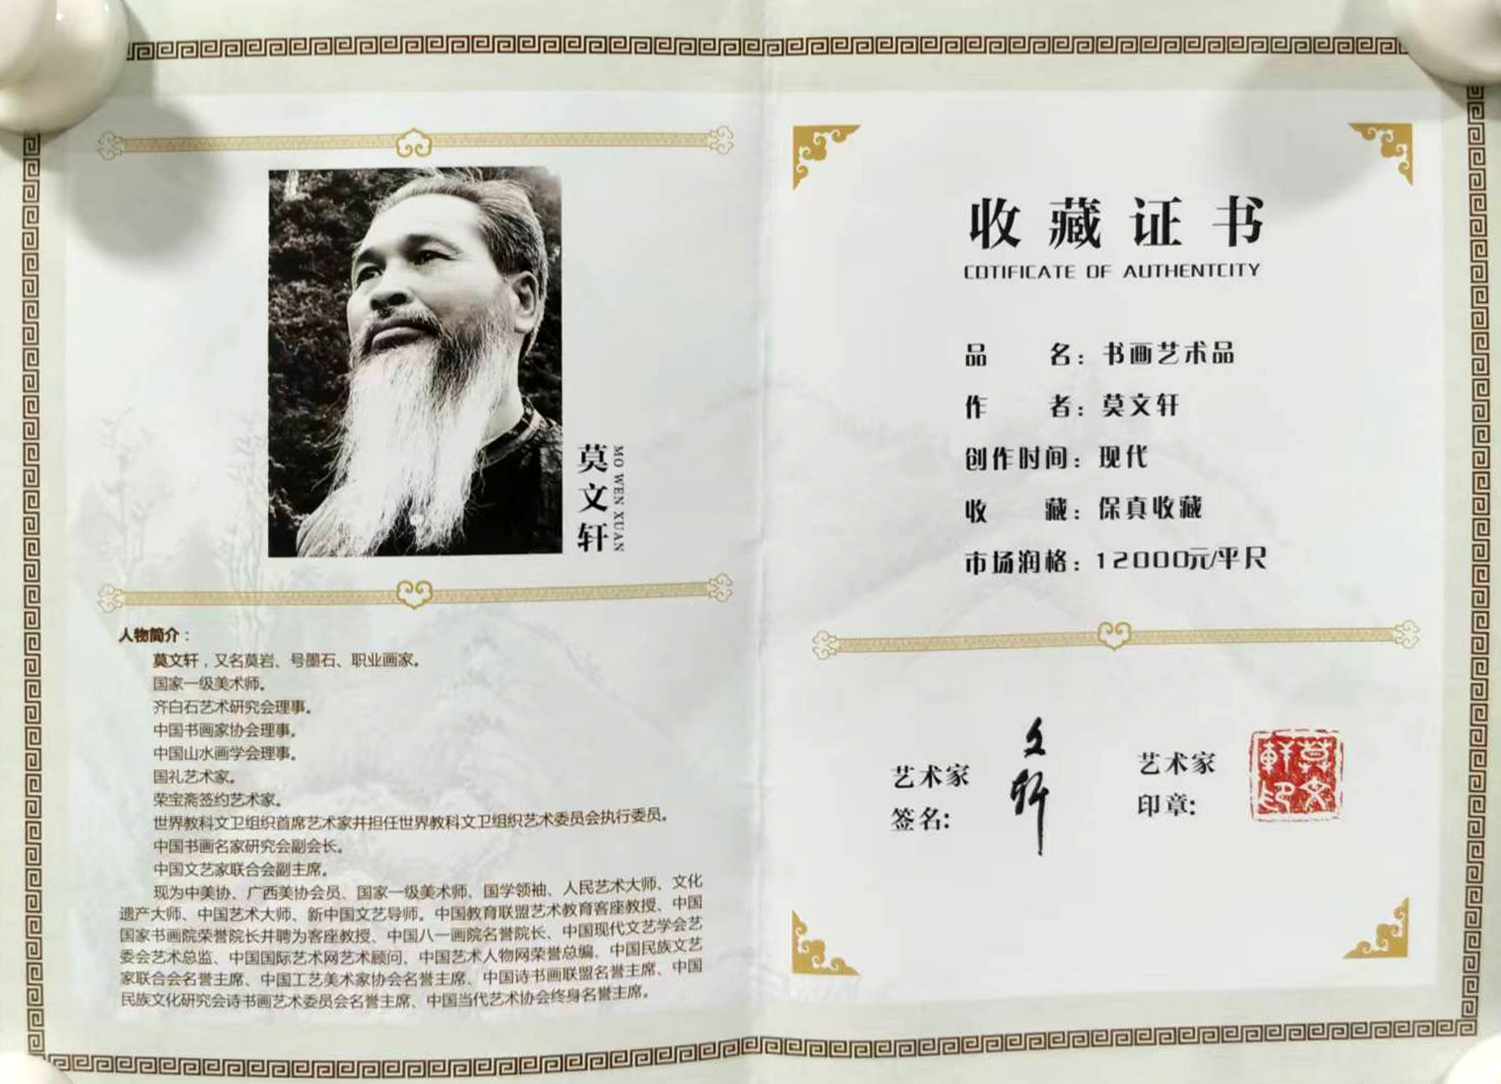 莫文轩
MO WEN XUAN
人物简介：
莫文轩，又名莫岩、号墨石、职业画家。
国家一级美术师。
齐白石艺术研究会理事。
中国书画家协会理事。
中国山水画学会理事。
国礼艺术家。
荣宝斋签约艺术家。
世界教科文卫组织首席艺术家并担任世界教科文卫组织艺术委员会执行委员。
中国书画名家研究会副会长。
中国文艺家联合会副主席。
现为中美协、广西美协会员、国家一级美术师、国学领袖、人民艺术大师、文化
遗产大师、中国艺术大师、新中国文艺导师。中国教育联盟艺术教育客座教授、中国
国家书画院荣誉院长并聘为客座教授、中国八一画院名誉院长、中国现代文艺学会艺
委会艺术总监、中国国际艺术网艺术顾问、中国艺术人物网荣誉总编、中国民族文艺
家联合会名誉主席、中国工艺美术家协会名誉主席、中国诗书画联盟名誉主席、中国
民族文化研究会诗书画艺术委员会名誉主席、中国当代艺术协会终身名誉主席。
收藏证书
COTIFICATE OF AUTHENTCITY
品 名：书画艺术品
作 者：莫文轩
创作时间：现代
收 藏：保真收藏
市场润格：12000元/平尺
艺术家
签名:
文轩
艺术家
印章:
莫文
軒印